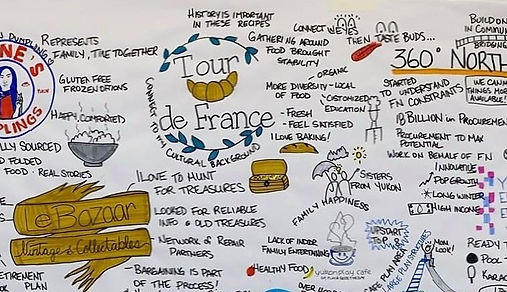 HISTORY IS IMPORTANT
IN THESE RECIPES
CONNECT W/ EYES
THEN TASTE BUDS...
BUILD ON
IN COMMUN
BRIDGING
DUMPLING
NE'S
PLINGS
REPRESENTS
FAMILY, TIME TOGETHER
GLUTEN FREE
FROZEN OPTIONS
HAPPY, COMFORTED
LLY SOURCED
D FOLDED
FOOD · REAL STORIES
Tour
de France
CONNECT TO MY
CULTURAL BACKGROUND
GATHERING AROUND
FOOD BROUGHT
STABILITY
- ORGANIC
MORE DIVERSITY - LOCAL
OF FOOD
- CUSTOMIZED
EDUCATION
- FRESH
- FEEL SATISFIED
I LOVE BAKING!
360° NORTH
STARTED
TO UNDERSTAND
FN CONSTRAINTS
WE CAN
THINGS MOR
AVAILABLE!
1 BILLION IN PROCUREMEN
PROCUREMENT TO MAX
POTENTIAL
WORK ON BEHALF OF FN
Le Bazaar
Vintage & Collectables
I LOVE TO HUNT
FOR TREASURES
LOOKED FOR RELIABLE
INFO + OLD TREASURES
- NETWORK OF REPAIR
PARTNERS
- BARGAINING IS PART
OF THE PROCESS!
ETIREMENT
OK PLAN
SISTERS
FROM YUKON
FAMILY HAPPINESS
LACK OF INDOOR
FAMILY ENTERTAINMENT
HEALTHY FOOD
yukonplay cafe
UPSTART
TOP 8
INNOVATIVE
POP GROWTH
LONG WINTER
HIGH INCOME
MOM
LOOK!
CAFE PLAY AREA
LARGE PLAY STRUCTURE
READY T
POOL
KARAO